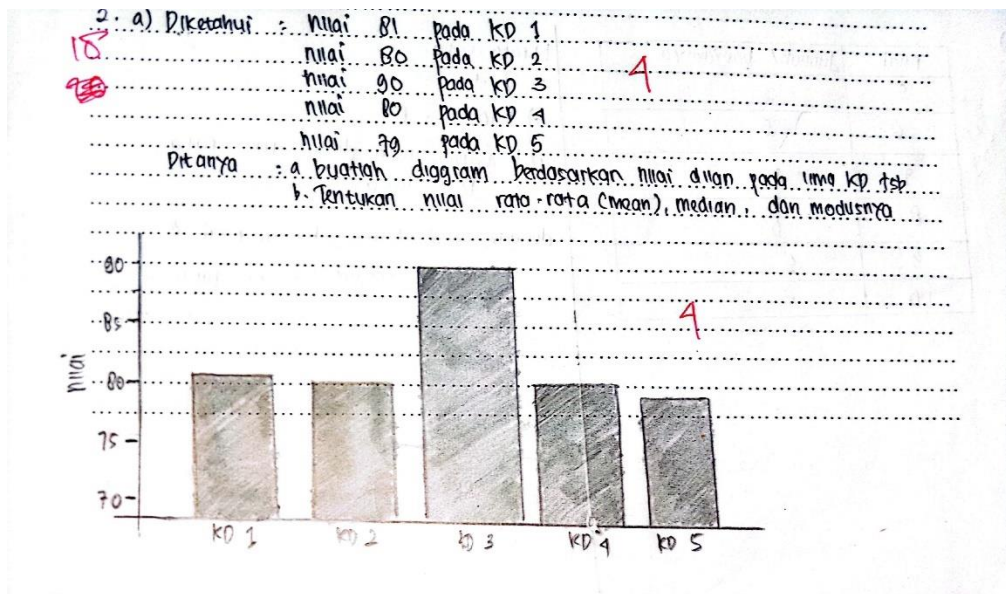 2. a) Diketahui : nilai 81 pada KD 1
18
nilai 80 pada KD 2
4
nilai 90 pada KD 3
nilai 80 pada KD 4
nilai 79 pada KD 5
Ditanya : a. buatlah diagram berdasarkan nilai dilan pada lima KD tsb
b. Tentukan nilai rata-rata (mean), median, dan modusnya
90
85
4
nilai
80
75
70
KD 1 KD 2 KD 3 KD 4 KD 5